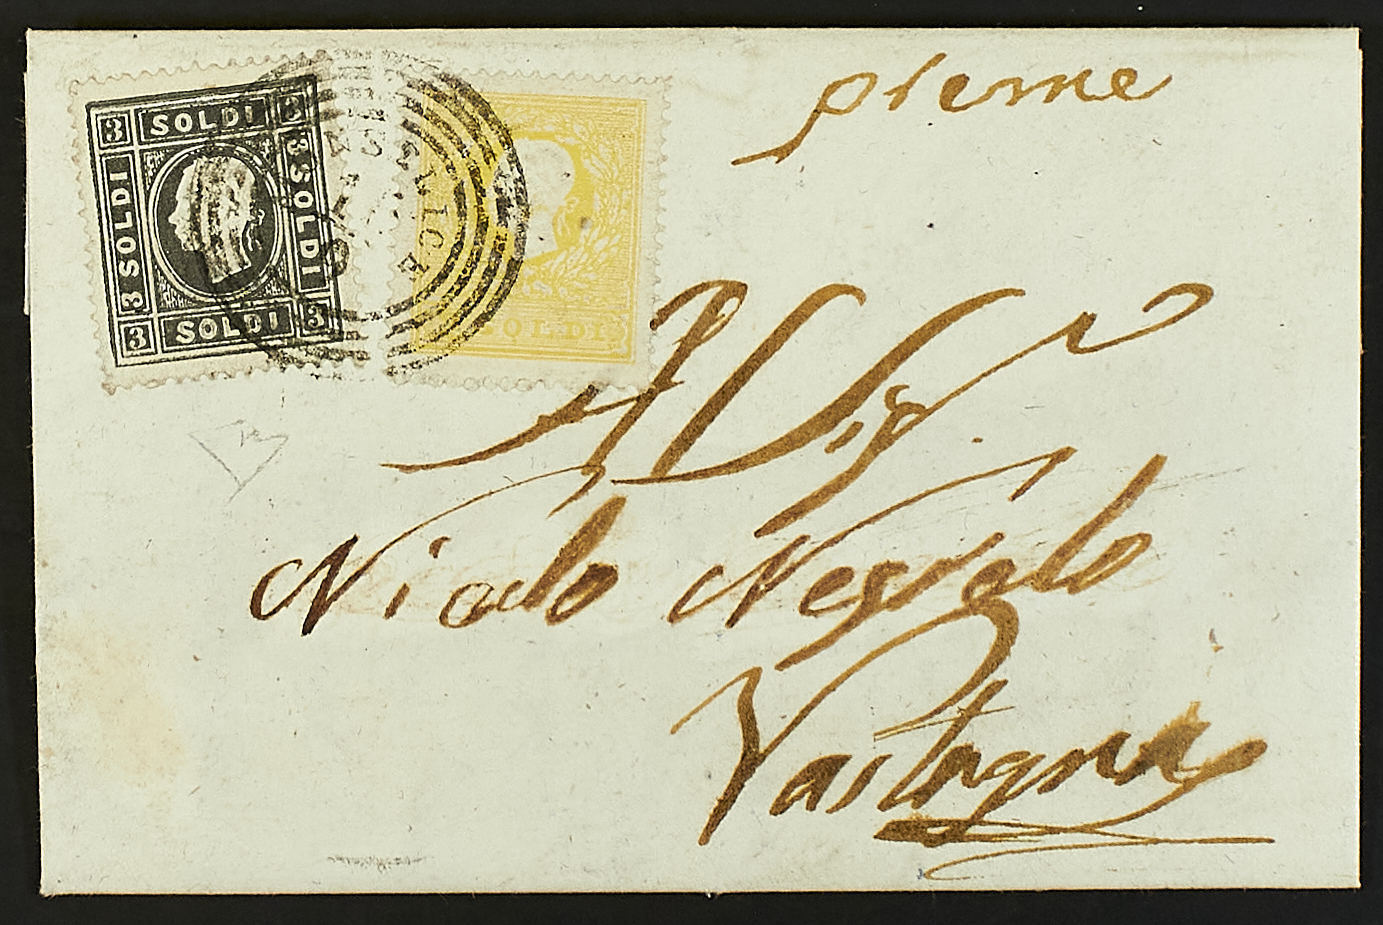 preme
3 SOLDI 3
3 SOLDI
3 SOLDI
3 SOLDI 3
SOLDI
Al Sigr
Nicolo Negrelo
Valstagna